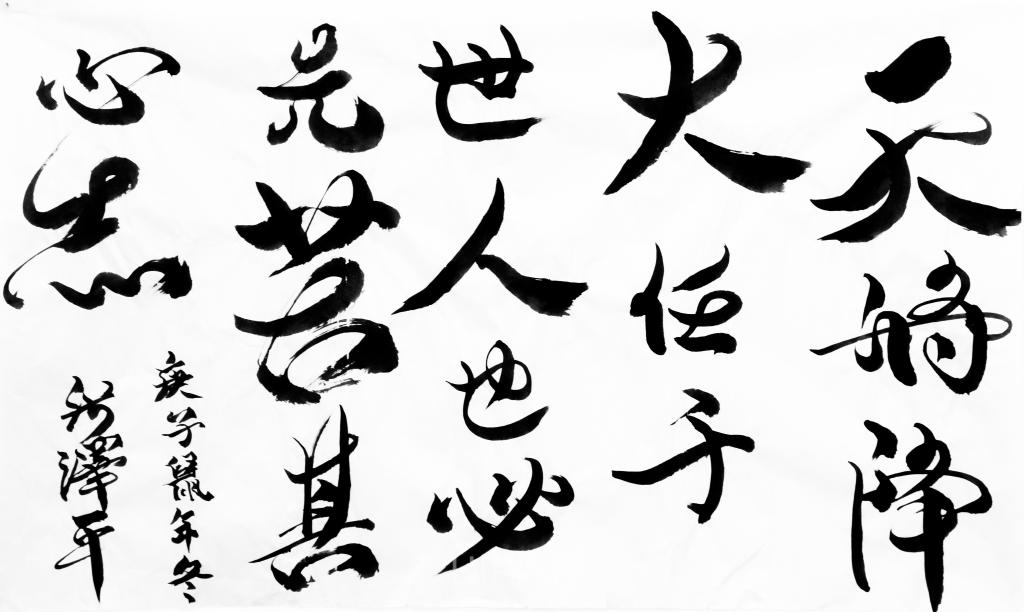 天将降
大任于
世人也必
先苦其
心志
庚子鼠年冬
澤平